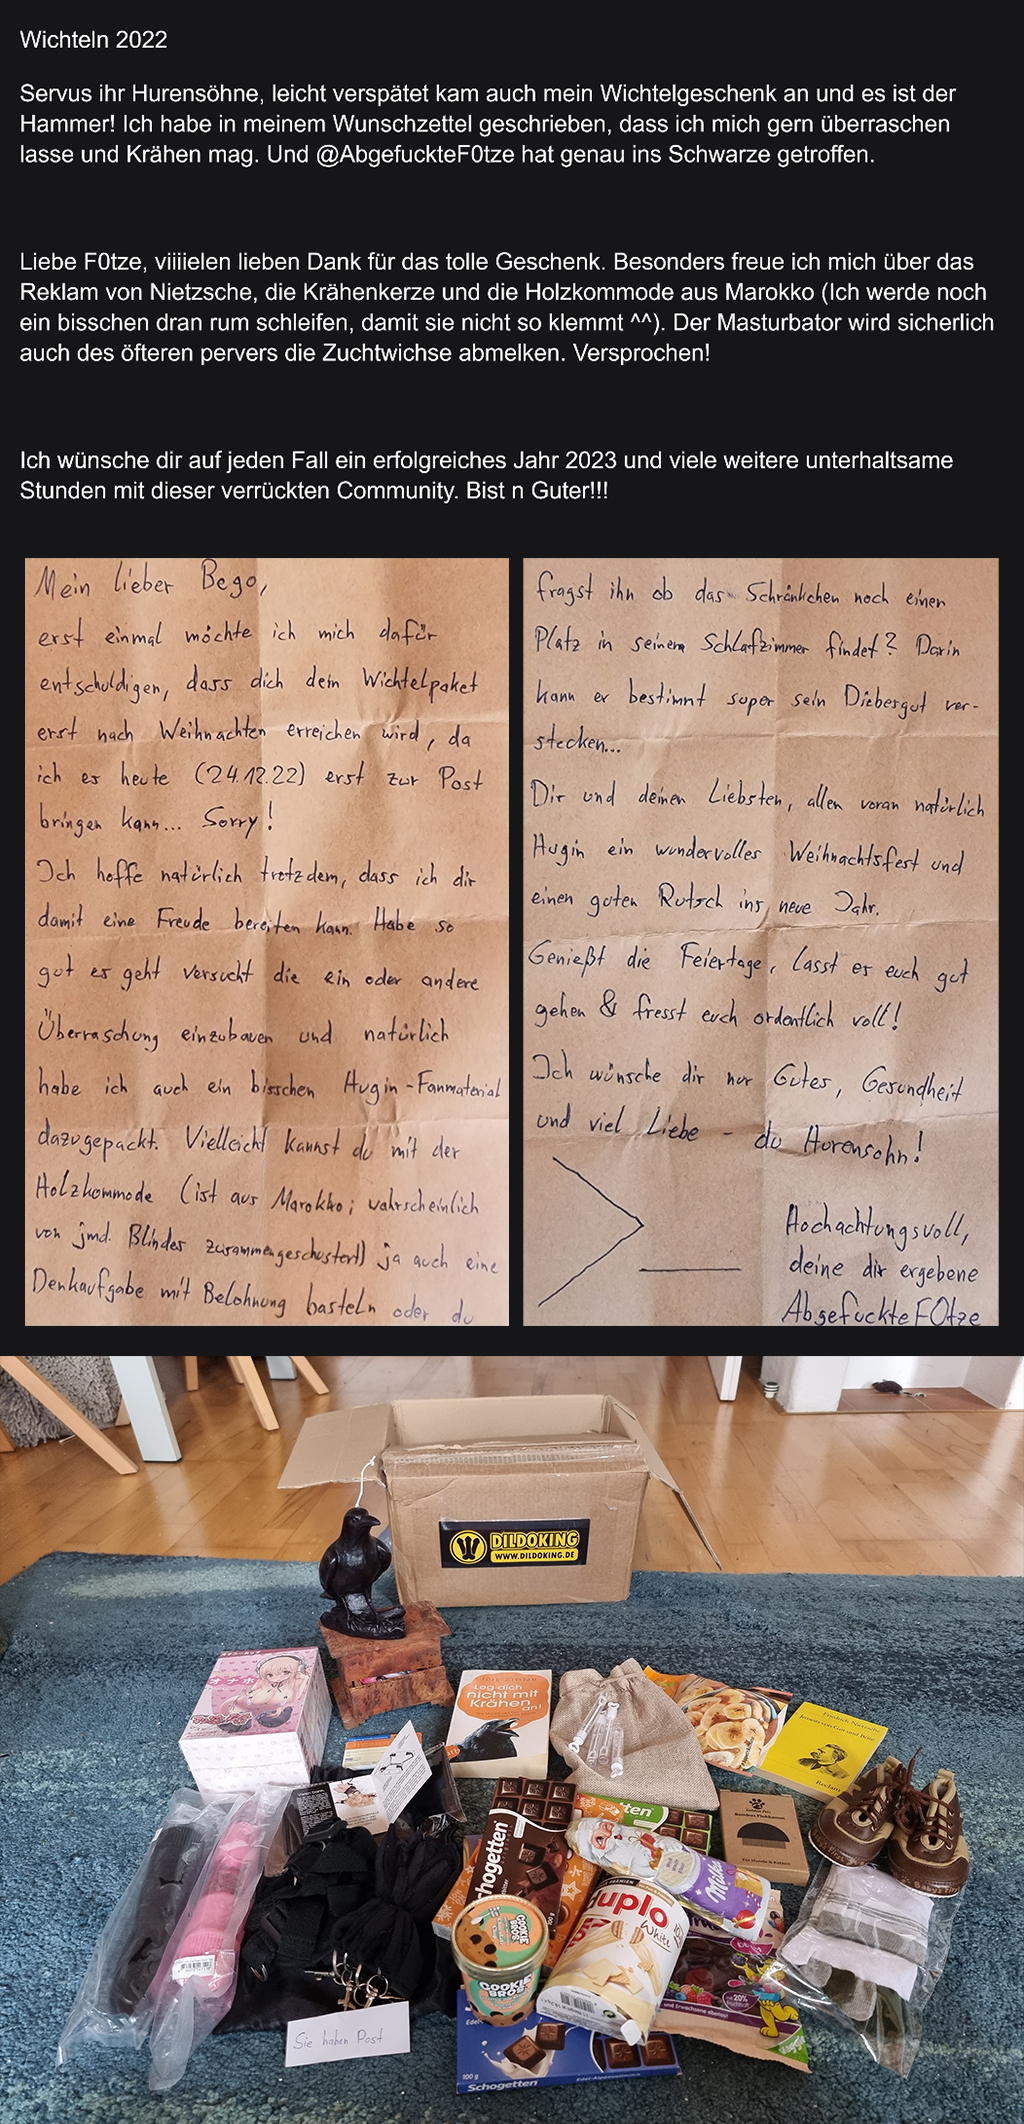 Wichteln 2022
Servus ihr Hurensöhne, leicht verspätet kam auch mein Wichtelgeschenk an und es ist der
Hammer! Ich habe in meinem Wunschzettel geschrieben, dass ich mich gern überraschen
lasse und Krähen mag. Und @AbgefuckteF0tze hat genau ins Schwarze getroffen.
Liebe F0tze, viiiielen lieben Dank für das tolle Geschenk. Besonders freue ich mich über das
Reklam von Nietzsche, die Krähenkerze und die Holzkommode aus Marokko (Ich werde noch
ein bisschen dran rum schleifen, damit sie nicht so klemmt ^^). Der Masturbator wird sicherlich
auch des öfteren pervers die Zuchtwichse abmelken. Versprochen!
Ich wünsche dir auf jeden Fall ein erfolgreiches Jahr 2023 und viele weitere unterhaltsame
Stunden mit dieser verrückten Community. Bist n Guter!!!
Mein lieber Bego,
erst einmal möchte ich mich dafür
entschuldigen, dass dich dein Wichtelpaket
erst nach Weihnachten erreichen wird, da
ich es heute (24.12.22) erst zur Post
bringen kann... Sorry!
Ich hoffe natürlich trotzdem, dass ich dir
damit eine Freude bereiten kann. Habe so
gut es geht versucht die ein oder andere
Überraschung einzubauen und natürlich
habe ich auch ein bisschen Hugin-Fanmaterial
dazugepackt. Vielleicht kannst du mit der
Holzkommode (ist aus Marokko; wahrscheinlich
von jmd. Blindes zusammengeschustert) ja auch eine
Denkaufgabe mit Belohnung basteln oder du
fragst ihn ob das Schränkchen noch einen
Platz in seinem Schlafzimmer findet? Darin
kann er bestimmt super sein Diebesgut ver-
stecken...
Dir und deinen Liebsten, allen voran natürlich
Hugin ein wundervolles Weihnachtsfest und
einen guten Rutsch ins neue Jahr.
Genießt die Feiertage, lasst es euch gut
gehen & fresst euch ordentlich voll!
Ich wünsche dir nur Gutes, Gesundheit
und viel Liebe - du Hurensohn!
Hochachtungsvoll,
deine dir ergebene
AbgefuckteF0tze
DILDOKING
WWW.DILDOKING.DE
オナホ
Leg dich
nicht mit
Krähen
an!
Friedrich Nietzsche
Jenseits von Gut und Böse
Reclam
Schogetten
ten
Milka
Bamboo Flohkamm
Für Hunde & Katzen
duplo
White
COOKIE
BROS
COOKIE
BROS
Sie haben Post
100 g
Schogetten
Edel-Alpenvollmilch